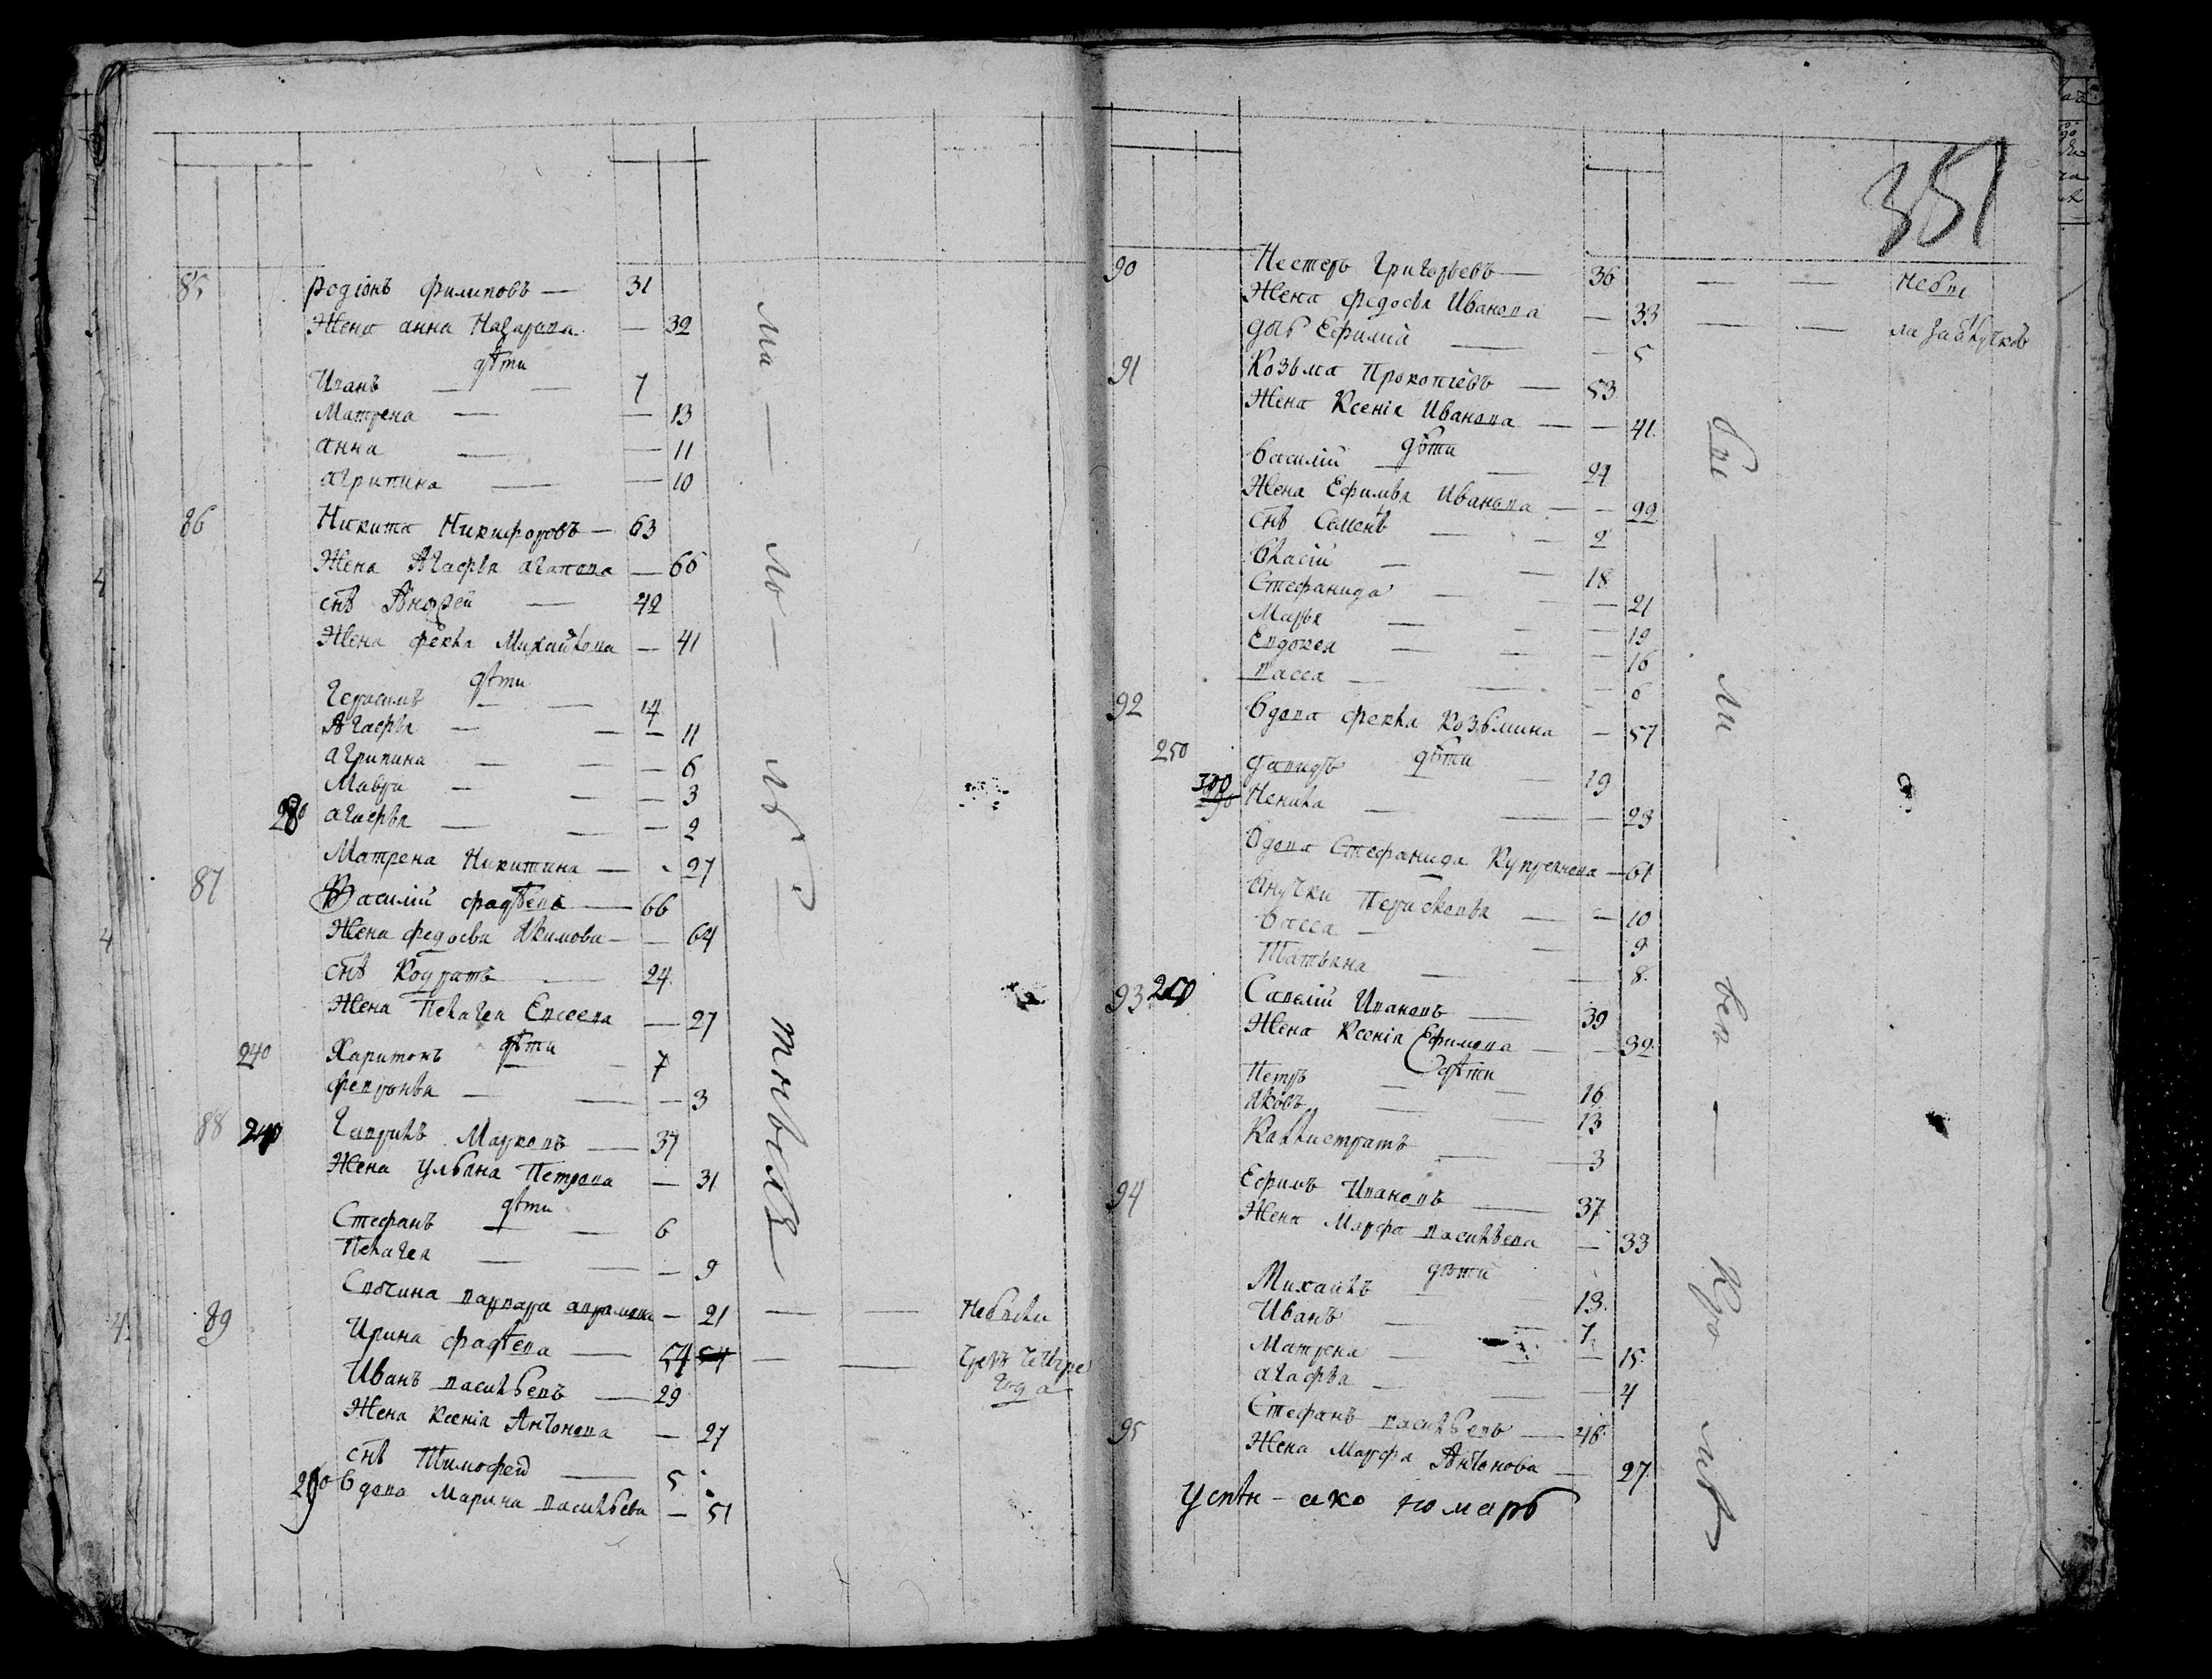 85 Родіонъ Филиповъ — 31
Жена Анна Назарова — 32
дѣти
Иванъ — 7
Матрена — 13
Анна — 11
Агрипина — 10
86 Никита Никифоровъ — 63
Жена Агафья Агапова — 66
снъ Андрей — 42
Жена Фекла Михайлова — 41
дѣти
Герасимъ — 14
Агафья — 11
Агрипина — 6
Мавра — 3
280 Агафья — 2
Матрена Никитина — 27
87 Василій Фадѣевъ — 66
Жена Федосья Акимова — 64
снъ Кодратъ — 24
Жена Пелагея Евсеева — 27
дѣти
240 Харитонъ — 7
Февронья — 3
88 240 Гаврилъ Марковъ — 37
Жена Ульяна Петрова — 31
дѣти
Стефанъ — 6
Пелагея — 9
Варвара Аврамова — 21 — — Небыли
89 Ирина Фадѣева — 54 — — чрезъ четыре года
Иванъ Васильевъ — 29
Жена Ксенія Антонова — 27
снъ Тимофей — 5
290 Вдова Марина Васильева — 51
351
90 Нестеръ Григорьевъ — 36 — — Небы
Жена Федосья Иванова — 33 — —
дчь Ефимія — 5
91 Козьма Прокопіевъ — 53
Жена Ксенія Иванова — 41
дѣти
Василій — 24
Жена Ефимья Иванова — 22
снъ Семенъ — 2
Власій — 18
Стефанида — 21
Марья — 19
Евдокея — 16
Васса — 6
92 Вдова Фекла Козьмина — 57
дѣти
250 Давидъ — 19
300 Ненила — 23
Вдова Стефанида — 61
Внучки Перасковья — 10
Васса — 9
Татьяна — 8
93 Савелій Ивановъ — 39
Жена Ксенія Ефимова — 32
дѣти
Петръ — 16
Яковъ — 13
Каллистратъ — 3
94 Ефимъ Ивановъ — 37
Жена Марфа Васильева — 33
дѣти
Михаилъ — 13
Иванъ — 7
Матрена — 15
Агафья — 4
95 Стефанъ Васильевъ — 46
Жена Марфа Антонова — 27
пономарь